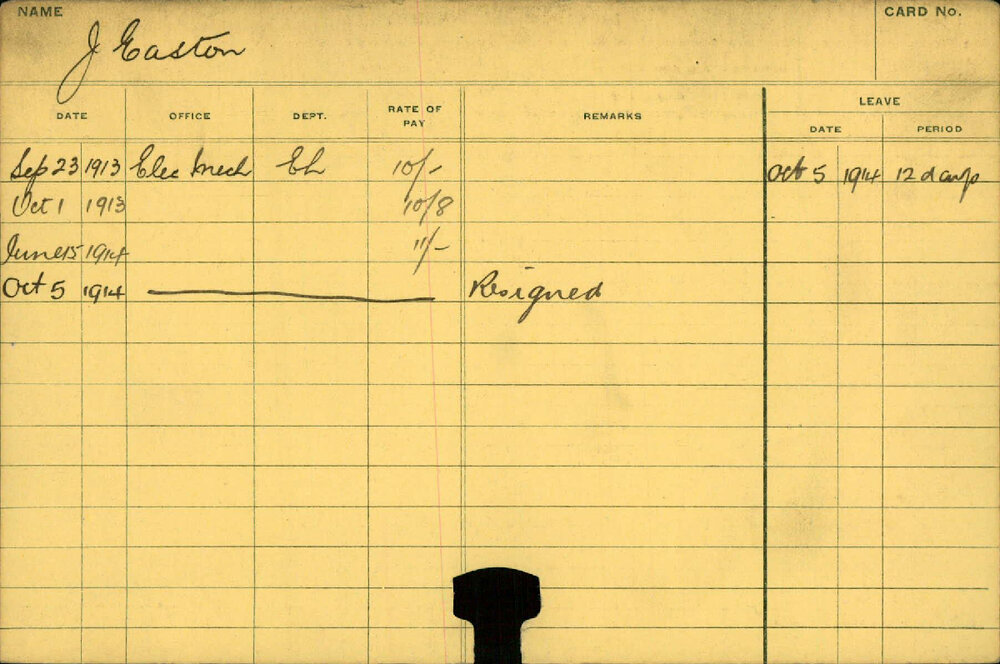 NAME CARD No.
J Easton
LEAVE
DATE OFFICE DEPT. RATE OF PAY REMARKS DATE PERIOD
Sep 23 1913 Elec Mech EL 10/- Oct 5 1914 12 days
Oct 1 1913 10/8
June 15 1914 11/-
Oct 5 1914 Resigned